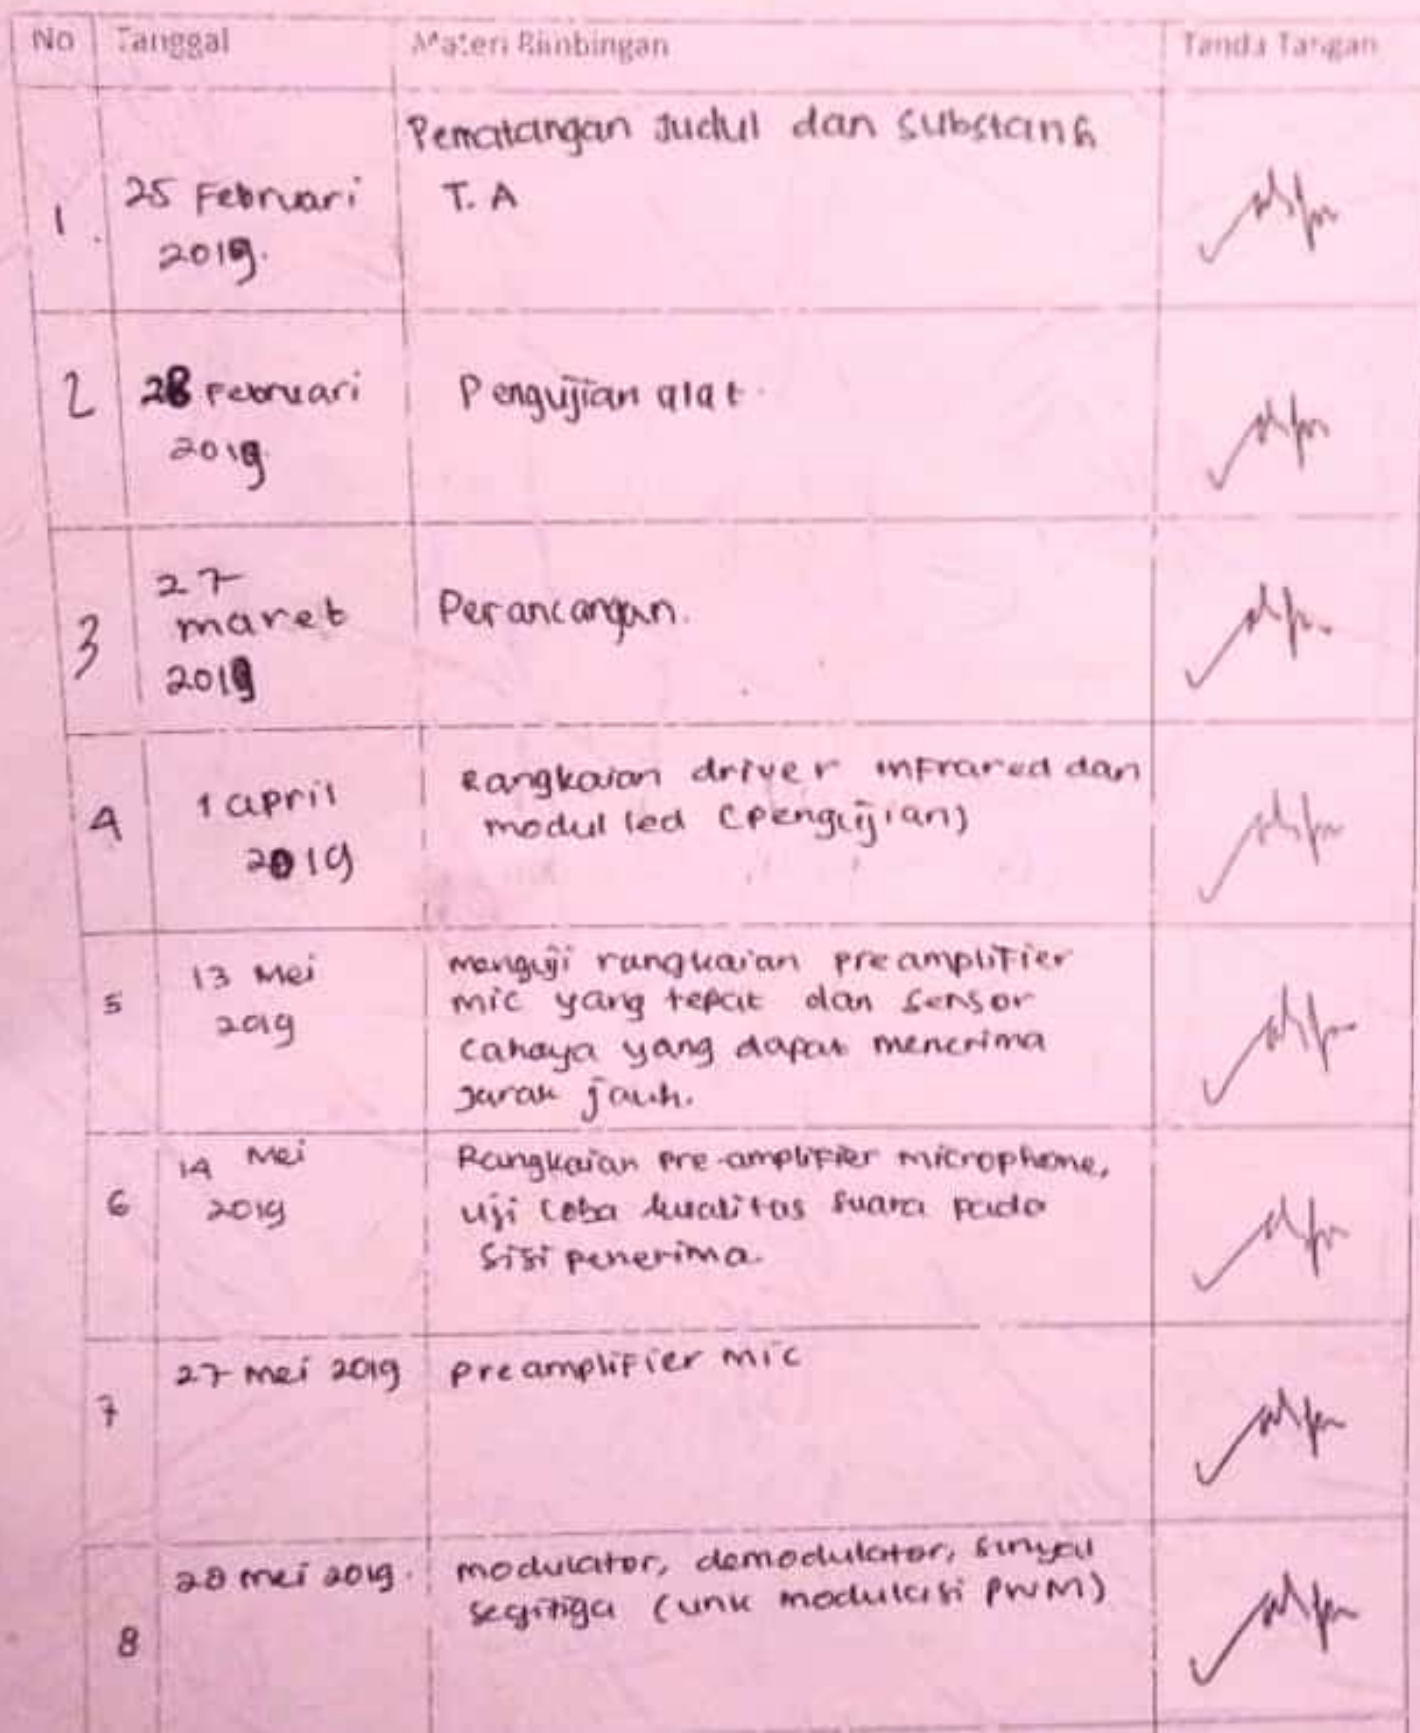 No Tanggal Materi Bimbingan Tanda Tangan
Pematangan Judul dan Substansi
1. 25 Februari T. A
2019.
2 28 Februari Pengujian alat.
2019.
27
3 maret Perancangan.
2019
Rangkaian driver infrared dan
4 1 april modul led (pengujian)
2019
5 13 Mei menguji rangkaian preamplifier
2019 mic yang tepat dan sensor
cahaya yang dapat menerima
jarak jauh.
14 Mei Rangkaian pre-amplifier microphone,
6 2019 uji coba kualitas suara pada
sisi penerima.
27 mei 2019 preamplifier mic
7
28 mei 2019. modulator, demodulator, sinyal
segitiga (unk modulasi PWM)
8